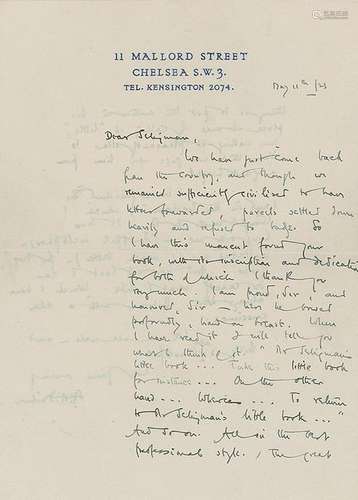 11 MALLORD STREET
CHELSEA S.W.3.
TEL. KENSINGTON 2074.
May 11th /23
Dear Seligman,
We have just come back
from the country, and though we
remained sufficiently civilised to have
letters forwarded, parcels settled down
heavily and refused to budge. So
I have this moment found your
book, with its inscription and dedication
for both of which I thank you
very much. I am proud, Sir, and
honoured, Sir – here he bowed
profoundly, hand on breast. When
I have read it I will tell you
what I think of it. "Mr Seligman's
little book ... Take this little book
for instance ... On the other
hand ... Whereas ... To return
to Mr Seligman's little book ..."
And so on. All in the best
professional style. The great